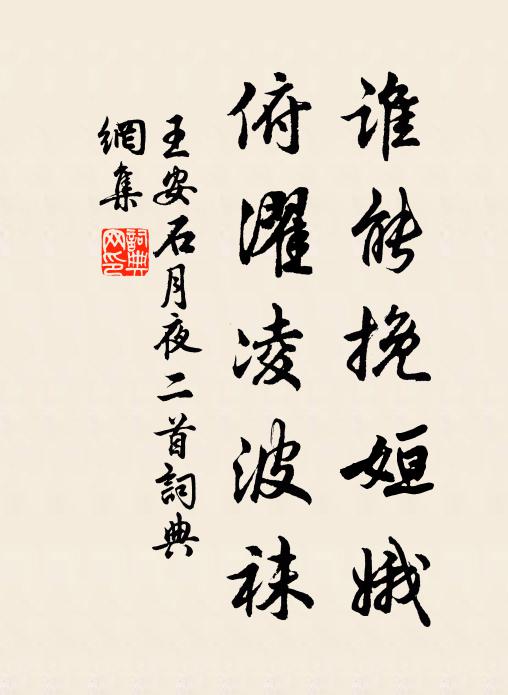 谁能挽姮娥
俯濯凌波袜
王安石月夜二首詞典
網集
詞典網印